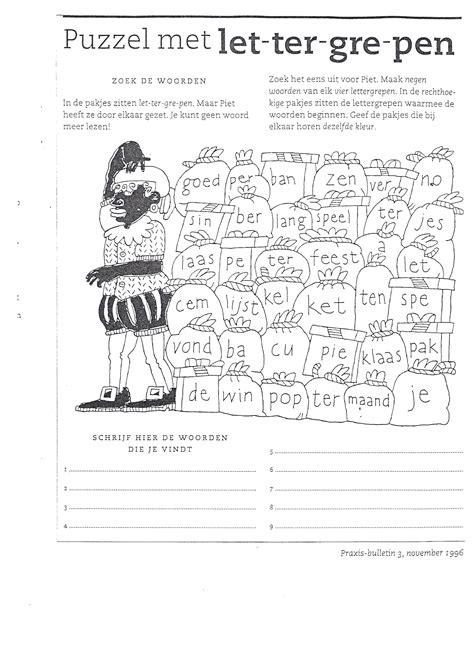 Puzzel met let-ter-gre-pen
ZOEK DE WOORDEN
In de pakjes zitten let-ter-gre-pen. Maar Piet
heeft ze door elkaar gezet. Je kunt geen woord
meer lezen!
Zoek het eens uit voor Piet. Maak negen
woorden van elk vier lettergrepen. In de rechthoe-
kige pakjes zitten de lettergrepen waarmee de
woorden beginnen. Geef de pakjes die bij
elkaar horen dezelfde kleur.
goed per ban zen ver no
sin ber lang speel ter jes
laas pe ter feest a let
cem lijst kel ket ten spe
vond ba cu pie klaas pak
de win pop ter maand je
SCHRIJF HIER DE WOORDEN
DIE JE VINDT
1
2
3
4
5
6
7
8
9
Praxis-bulletin 3, november 1996